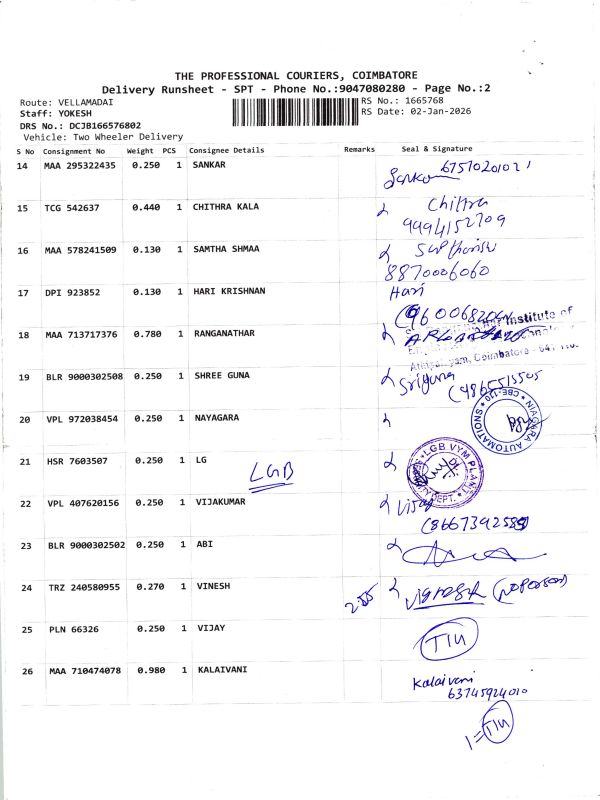 THE PROFESSIONAL COURIERS, COIMBATORE
Delivery Runsheet - SPT - Phone No.:9047080280 - Page No.:2
Route: VELLAMADAI
RS No.: 1665768
Staff: YOKESH
RS Date: 02-Jan-2026
DRS No.: DCJB166576802
Vehicle: Two Wheeler Delivery
S No Consignment No Weight PCS Consignee Details Remarks Seal & Signature
14 MAA 295322435 0.250 1 SANKAR
15 TCG 542637 0.440 1 CHITHRA KALA Chithra
9994152709
16 MAA 578241509 0.130 1 SAMTHA SHMAA
8870006060
17 DPI 923852 0.130 1 HARI KRISHNAN Hari
Institute of
18 MAA 713717376 0.780 1 RANGANATHAR
Coimbatore - 641
19 BLR 9000302508 0.250 1 SHREE GUNA Sriguna
20 VPL 972038454 0.250 1 NAYAGARA
NIAGARA AUTOMATIONS CBE-110
21 HSR 7603507 0.250 1 LG LGB
LGB VYM PLANT DEPT.
22 VPL 407620156 0.250 1 VIJAKUMAR Vijay
23 BLR 9000302502 0.250 1 ABI
24 TRZ 240580955 0.270 1 VINESH
25 PLN 66326 0.250 1 VIJAY
26 MAA 710474078 0.980 1 KALAIVANI Kalaivani
63745924010